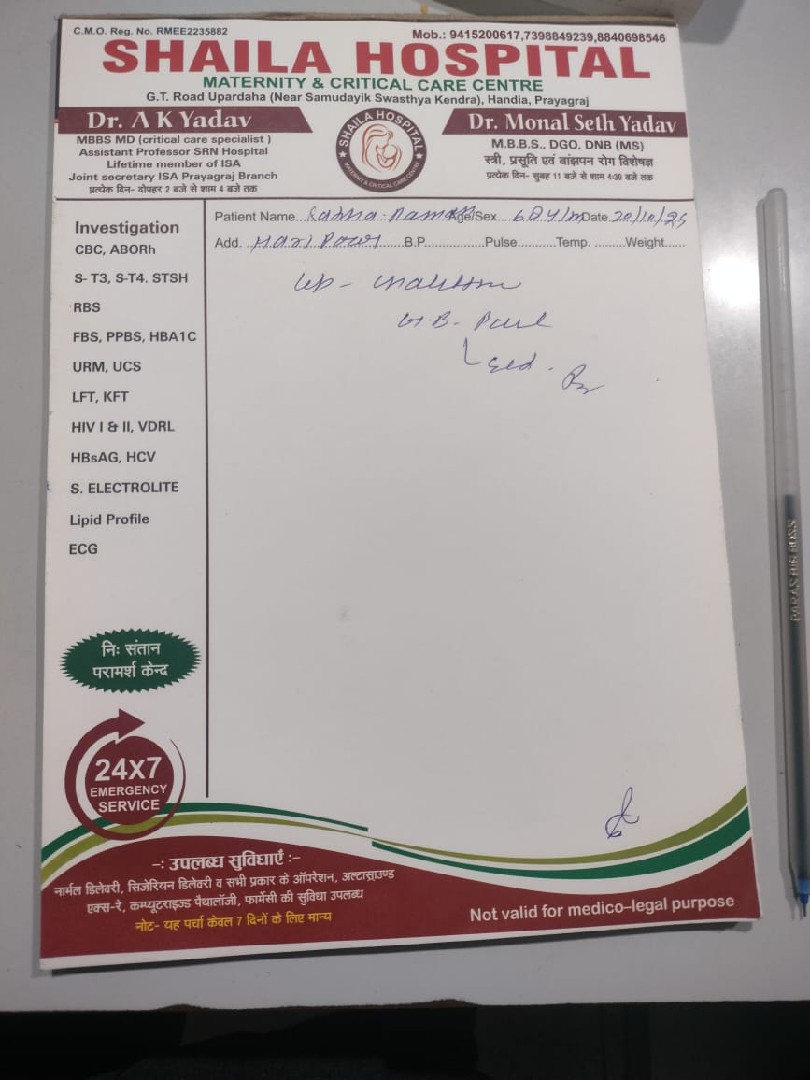 C.M.O. Reg. No. RMEE2235882
Mob.: 9415200617,7398849239,8840698546
SHAILA HOSPITAL
MATERNITY & CRITICAL CARE CENTRE
G.T. Road Upardaha (Near Samudayik Swasthya Kendra), Handia, Prayagraj
Dr. A K Yadav
MBBS MD (critical care specialist )
Assistant Professor SRN Hospital
Lifetime member of ISA
Joint secretary ISA Prayagraj Branch
प्रत्येक दिन- दोपहर 2 बजे से शाम 4 बजे तक
SHAILA HOSPITAL
MATERNITY & CRITICAL CARE CENTRE
Dr. Monal Seth Yadav
M.B.B.S., DGO, DNB (MS)
स्त्री, प्रसूति एवं बांझपन रोग विशेषज्ञ
प्रत्येक दिन- सुबह 11 बजे से शाम 4:30 बजे तक
Patient Name Age/Sex Date 20/10/25
Add. B.P. Pulse Temp. Weight
Investigation
CBC, ABORh
S- T3, S-T4. STSH
RBS
FBS, PPBS, HBA1C
URM, UCS
LFT, KFT
HIV I & II, VDRL
HBsAG, HCV
S. ELECTROLITE
Lipid Profile
ECG
निः संतान
परामर्श केन्द
24X7
EMERGENCY
SERVICE
-: उपलब्ध सुविधाएँ :-
नार्मल डिलेवरी, सिजेरियन डिलेवरी व सभी प्रकार के ऑपरेशन, अल्ट्रासाउण्ड
एक्स-रे, कम्प्यूटराइज्ड पैथालॉजी, फार्मेसी की सुविधा उपलब्ध
नोट- यह पर्चा केवल 7 दिनों के लिए मान्य
Not valid for medico-legal purpose